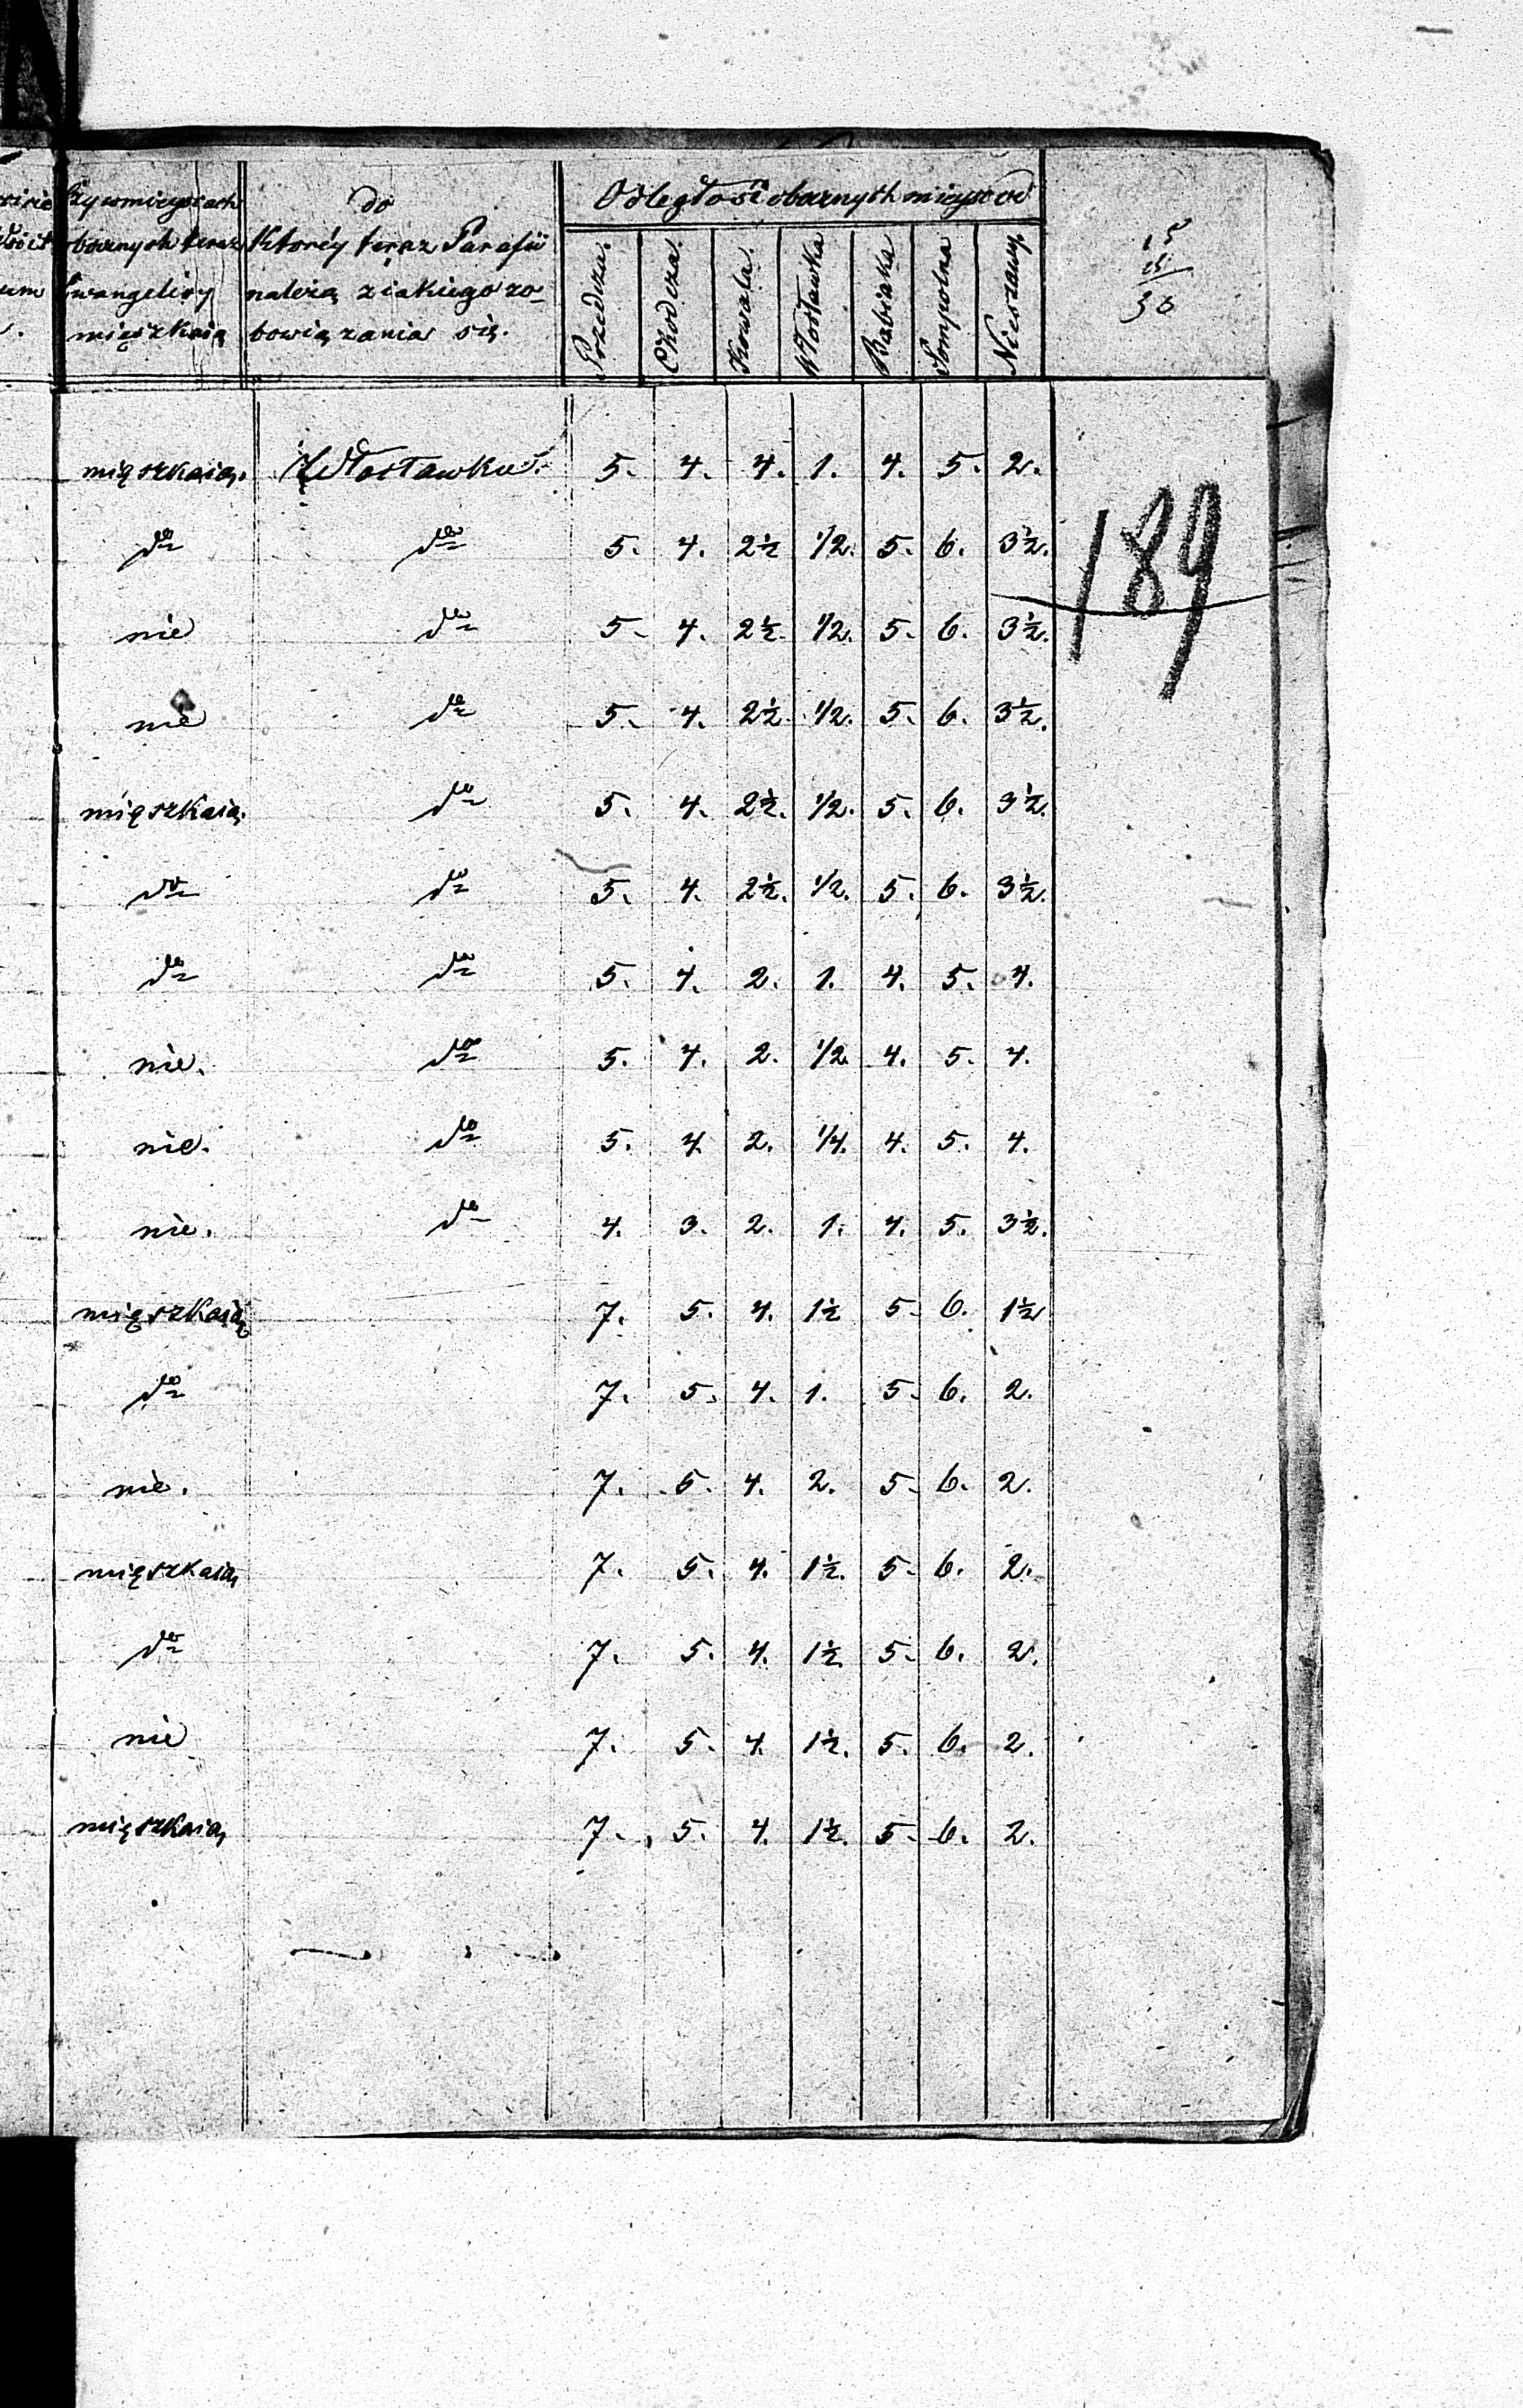 Czy w mieyscach
obocznych teraz
Ewangelicy
mięszkaią
do
Którèy teraz Parafii
należą z iakiego zo-
bowiązania się.
Odległość obocznych mieysc od
Przedcza.
Chodcza.
Kowala.
Włocławka
Babiaka
Sompolna
Nieszawy.
15
15
30
189
mięszkaią. Włocławku. 5. 4. 4. 1. 4. 5. 2.
do do 5. 4. 2½ ½. 5. 6. 3½.
nie do 5. 4. 2½. ½. 5. 6. 3½.
nie do 5. 4. 2½ ½. 5. 6. 3½.
mięszkaią. do 5. 4. 2½. ½. 5. 6. 3½.
do do 5. 4. 2½. ½. 5. 6. 3½.
do do 5. 4. 2. 1. 4. 5. 4.
nie. do 5. 4. 2. ½ 4. 5. 4.
nie. do 5. 4. 2. ¼. 4. 5. 4.
nie. do 4. 3. 2. 1. 4. 5. 3½.
mięszkaią 7. 5. 4. 1½ 5. 6. 1½
do 7. 5. 4. 1. 5. 6. 2.
nie. 7. 5. 4. 2. 5. 6. 2.
mięszkaią 7. 5. 4. 1½. 5. 6. 2.
do 7. 5. 4. 1½ 5. 6. 2.
nie 7. 5. 4. 1½. 5. 6. 2.
mięszkaią 7. 5. 4. 1½. 5. 6. 2.